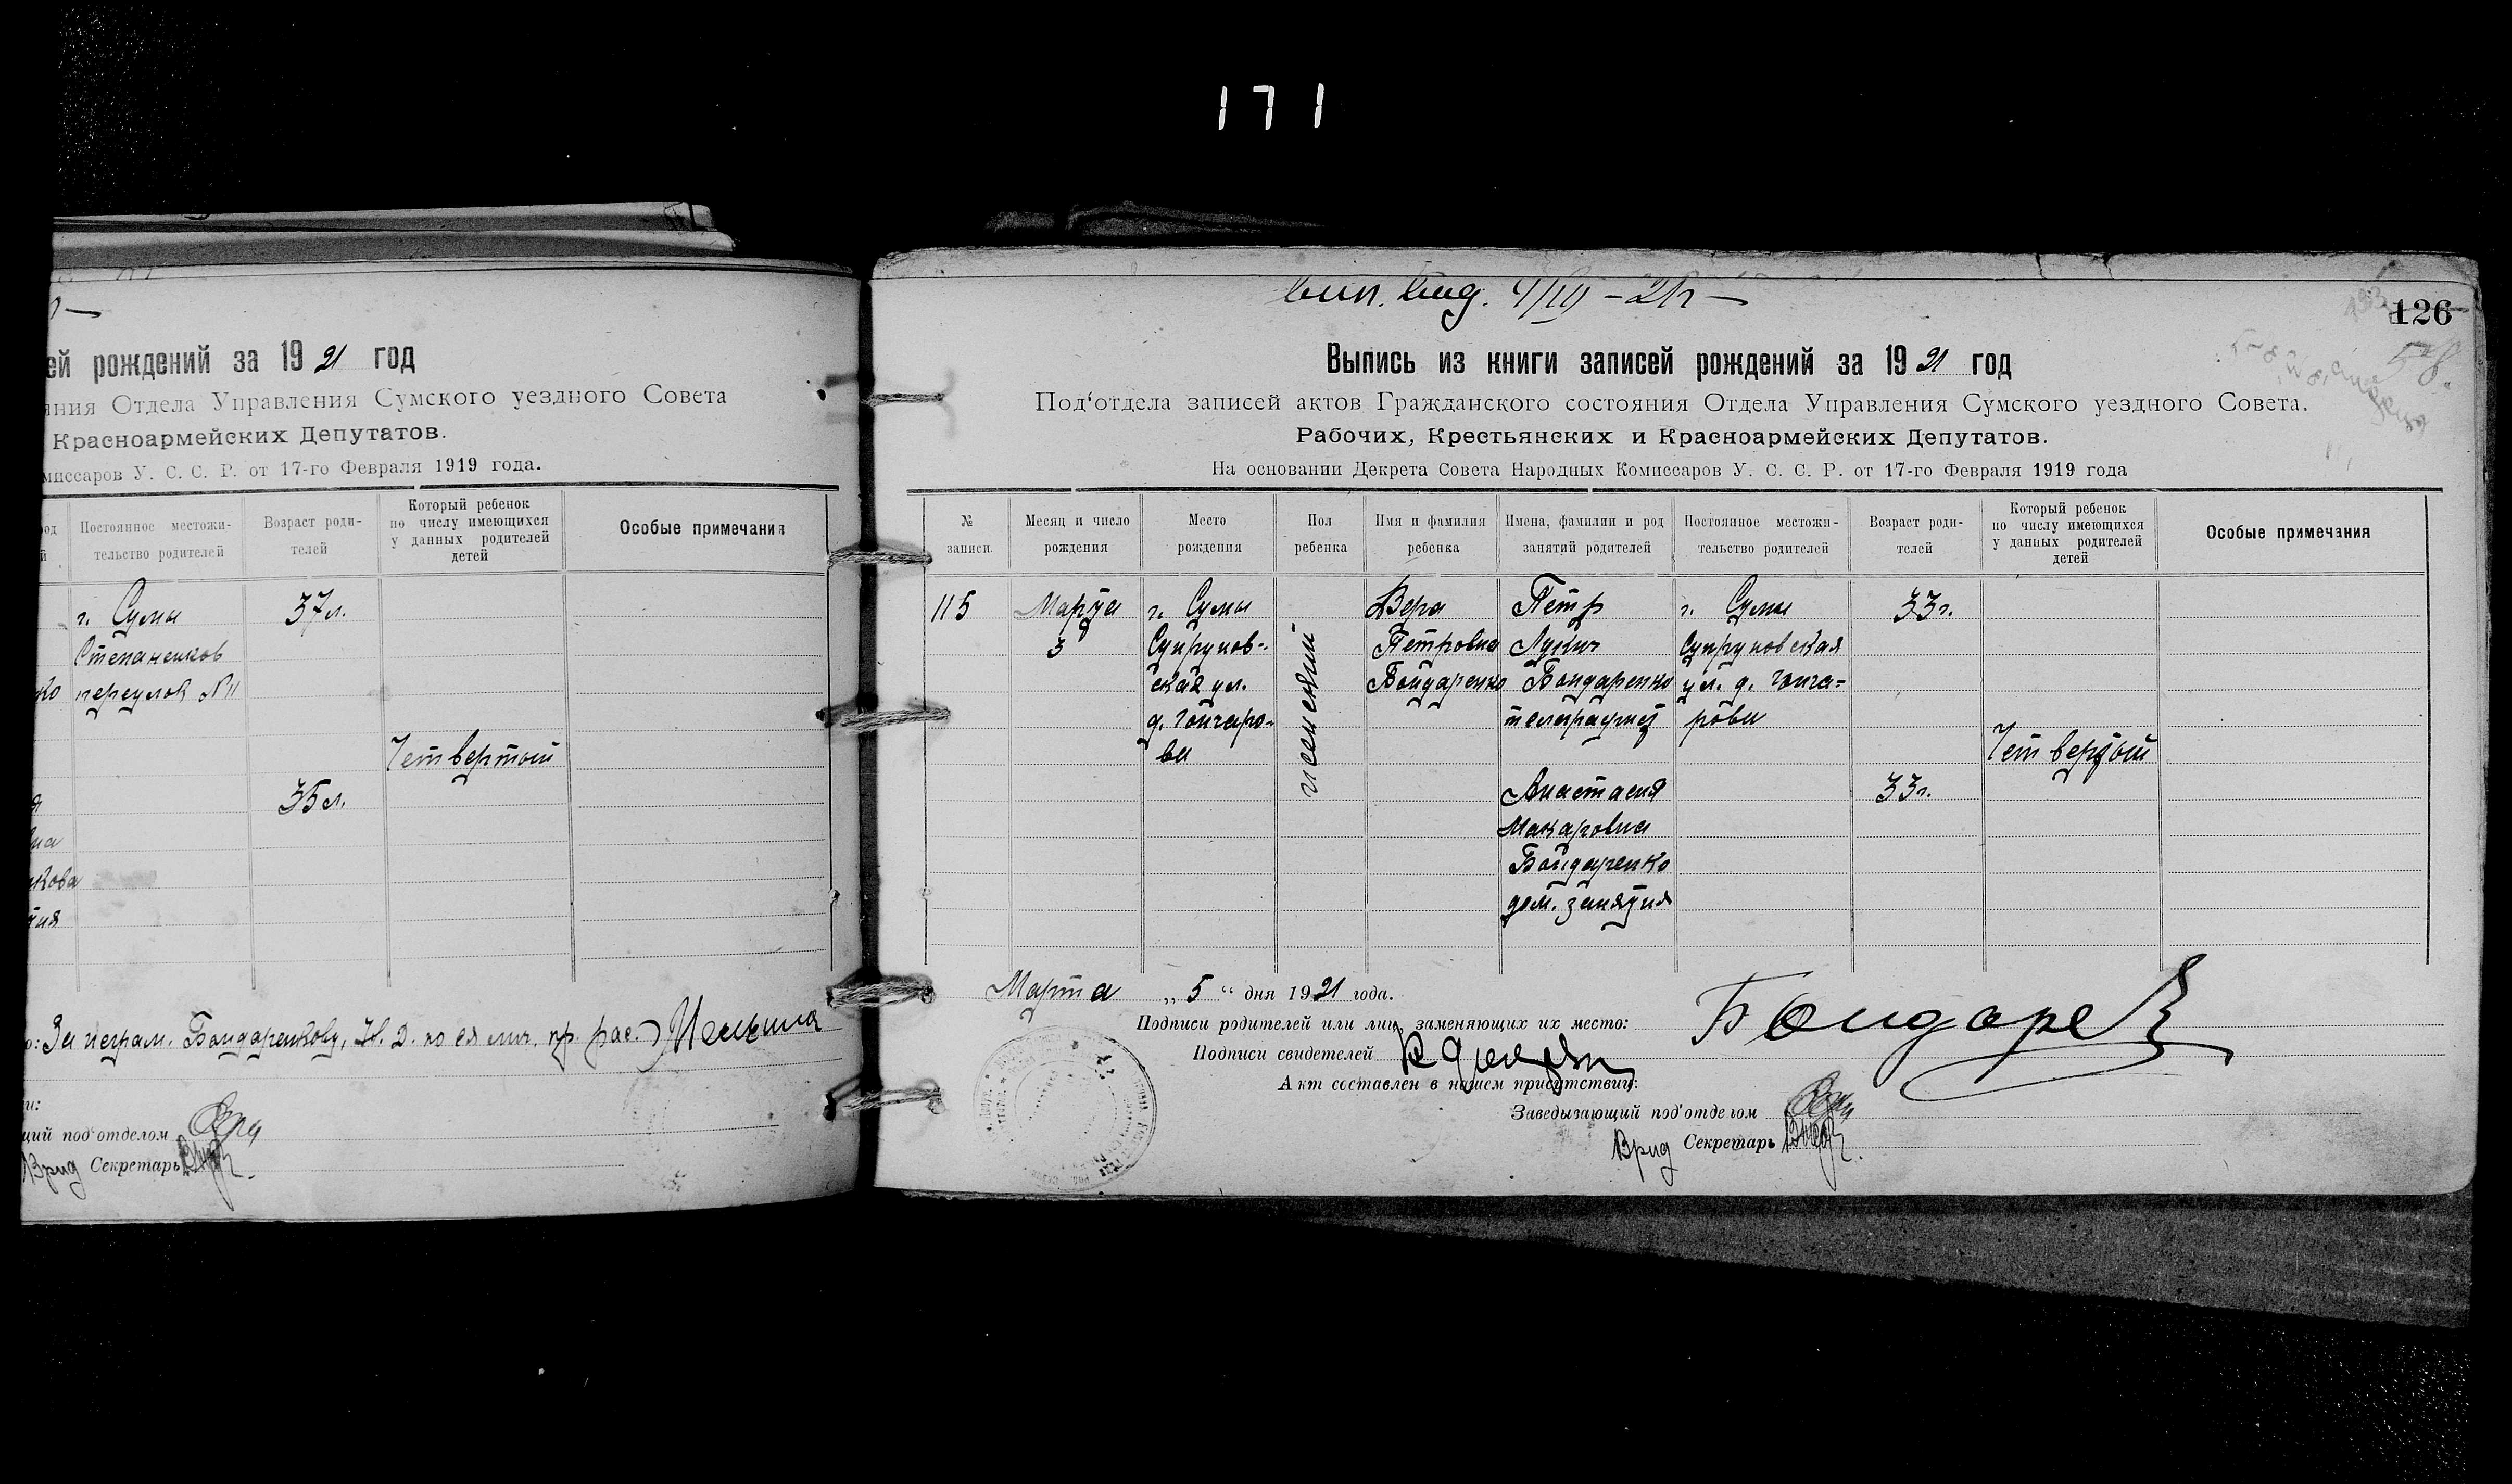 171
ей рождений за 1921 год
яния Отдела Управления Сумского уездного Совета
Красноармейских Депутатов.
миссаров У. С. С. Р. от 17-го Февраля 1919 года.
Постоянное местожи-
тельство родителей
Возраст роди-
телей
Который ребенок
по числу имеющихся
у данных родителей
детей
Особые примечания
г. Сумы
Степаненков
переулок №11
37 л.
Четвертый
35 л.
За неграм. Бондаренкову,
щий под'отделом
Врид Секретарь
126
Выпись из книги записей рождений за 1921 год
Под'отдела записей актов Гражданского состояния Отдела Управления Сумского уездного Совета.
Рабочих, Крестьянских и Красноармейских Депутатов.
На основании Декрета Совета Народных Комиссаров У. С. С. Р. от 17-го Февраля 1919 года
№
записи.
Месяц и число
рождения
Место
рождения
Пол
ребенка
Имя и фамилия
ребенка
Имена, фамилии и род
занятий родителей
Постоянное местожи-
тельство родителей
Возраст роди-
телей
Который ребенок
по числу имеющихся
у данных родителей
детей
Особые примечания
115
Марта
3
г. Сумы
Супрунов-
ская ул.
д. Гончаро-
ва
женский
Вера
Петровна
Бондаренко
Петр
Лукич
Бондаренко
телеграфист
Анастасия
Макаровна
Бондаренко
дом. занятия
г. Сумы
Супруновская
ул. д. Гонча-
рова
33 г.
33 г.
Четвертый
Марта „5“ дня 1921 года.
Подписи родителей или лиц, заменяющих их место: Бондаре
Подписи свидетелей
Акт составлен в нашем присутствии:
Заведывающий под'отделом
Врид Секретарь